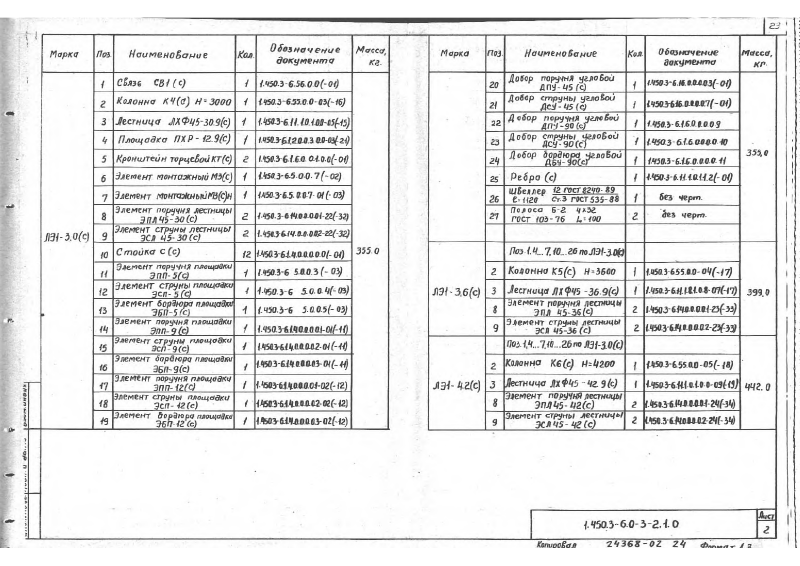 23
Марка Поз. Наименование Кол. Обозначение документа Масса, кг.
ЛЭ1-3,0(с) 355.0
1 Связь СВ1(с) 1 1.450.3-6.56.0.0(-01)
2 Колонна К4(с) Н=3000 1 1.450.3-6.55.0.0-03(-16)
3 Лестница ЛХФ45-30.9(с) 1
4 Площадка ПХР-12.9(с) 1
5 Кронштейн торцевой КТ(с) 2 1.450.3-6.1.6.0.0.1.0.0(-01)
6 Элемент монтажный МЭ(с) 1 1.450.3-6.5.0.0.7(-02)
7 Элемент монтажный МЭ(с)Н 1 1.450.3-6.5.0.0.7-01(-03)
8 Элемент поручня лестницы ЭПЛ 45-30(с) 2
9 Элемент струны лестницы ЭСЛ 45-30(с) 2
10 Стойка С(с) 12 1.450.3-6.1.4.0.0.0.0(-01)
11 Элемент поручня площадки ЭПП-5(с) 1 1.450.3-6 5.0.0.3(-03)
12 Элемент струны площадки ЭСП-5(с) 1 1.450.3-6 5.0.0.4(-03)
13 Элемент бордюра площадки ЭБП-5(с) 1 1.450.3-6 5.0.0.5(-03)
14 Элемент поручня площадки ЭПП-9(с) 1 1.450.3-6.1.4.0.0.0.1-01(-11)
15 Элемент струны площадки ЭСП-9(с) 1 1.450.3-6.1.4.0.0.0.2-01(-11)
16 Элемент бордюра площадки ЭБП-9(с) 1 1.450.3-6.1.4.0.0.0.3-01(-11)
17 Элемент поручня площадки ЭПП-12(с) 1 1.450.3-6.1.4.0.0.0.1-02(-12)
18 Элемент струны площадки ЭСП-12(с) 1 1.450.3-6.1.4.0.0.0.2-02(-12)
19 Элемент бордюра площадки ЭБП-12(с) 1 1.450.3-6.1.4.0.0.0.3-02(-12)
Марка Поз. Наименование Кол. Обозначение документа Масса, кг.
355,0
20 Добор поручня угловой ДПУ-45(с) 1 1.450.3-6.1.6.0.0.0.0.3(-01)
21 Добор струны угловой ДСУ-45(с) 1 1.450.3-6.1.6.0.0.0.0.7(-01)
22 Добор поручня угловой ДПУ-90(с) 1 1.450.3-6.1.6.0.0.0.0.9
23 Добор струны угловой ДСУ-90(с) 1 1.450.3-6.1.6.0.0.0.0.10
24 Добор бордюра угловой ДБУ-90(с) 1 1.450.3-6.1.6.0.0.0.0.11
25 Ребра(с) 1 1.450.3-6.1.1.1.0.1.1.2(-01)
26 Швеллер 12 ГОСТ 8240-89 ℓ=1120 Ст.3 ГОСТ 535-88 1 без черт.
27 Полоса Б-2 4х32 ГОСТ 103-76 L=100 2 без черт.
ЛЭ1-3,6(с) 399,0
Поз.1,4...7,10...26 по ЛЭ1-3.0(с)
2 Колонна К5(с) Н=3600 1 1.450.3-6.55.0.0-04(-17)
3 Лестница ЛХФ45-36.9(с) 1
8 Элемент поручня лестницы ЭПЛ 45-36(с) 2 1.450.3-6.1.4.0.0.0.1-23(-33)
9 Элемент струны лестницы ЭСЛ 45-36(с) 2 1.450.3-6.1.4.0.0.0.2-23(-33)
ЛЭ1-4.2(с) 442.0
Поз.1,4...7,10...26 по ЛЭ1-3.0(с)
2 Колонна К6(с) Н=4200 1 1.450.3-6.55.0.0-05(-18)
3 Лестница ЛХФ45-42.9(с) 1
8 Элемент поручня лестницы ЭПЛ45-42(с) 2 1.450.3-6.1.4.0.0.0.1-24(-34)
9 Элемент струны лестницы ЭСЛ45-42(с) 2 1.450.3-6.1.4.0.0.0.2-24(-34)
1.450.3-6.0-3-2.1.0
Лист
2
Копировал 24368-02 24 Формат А3